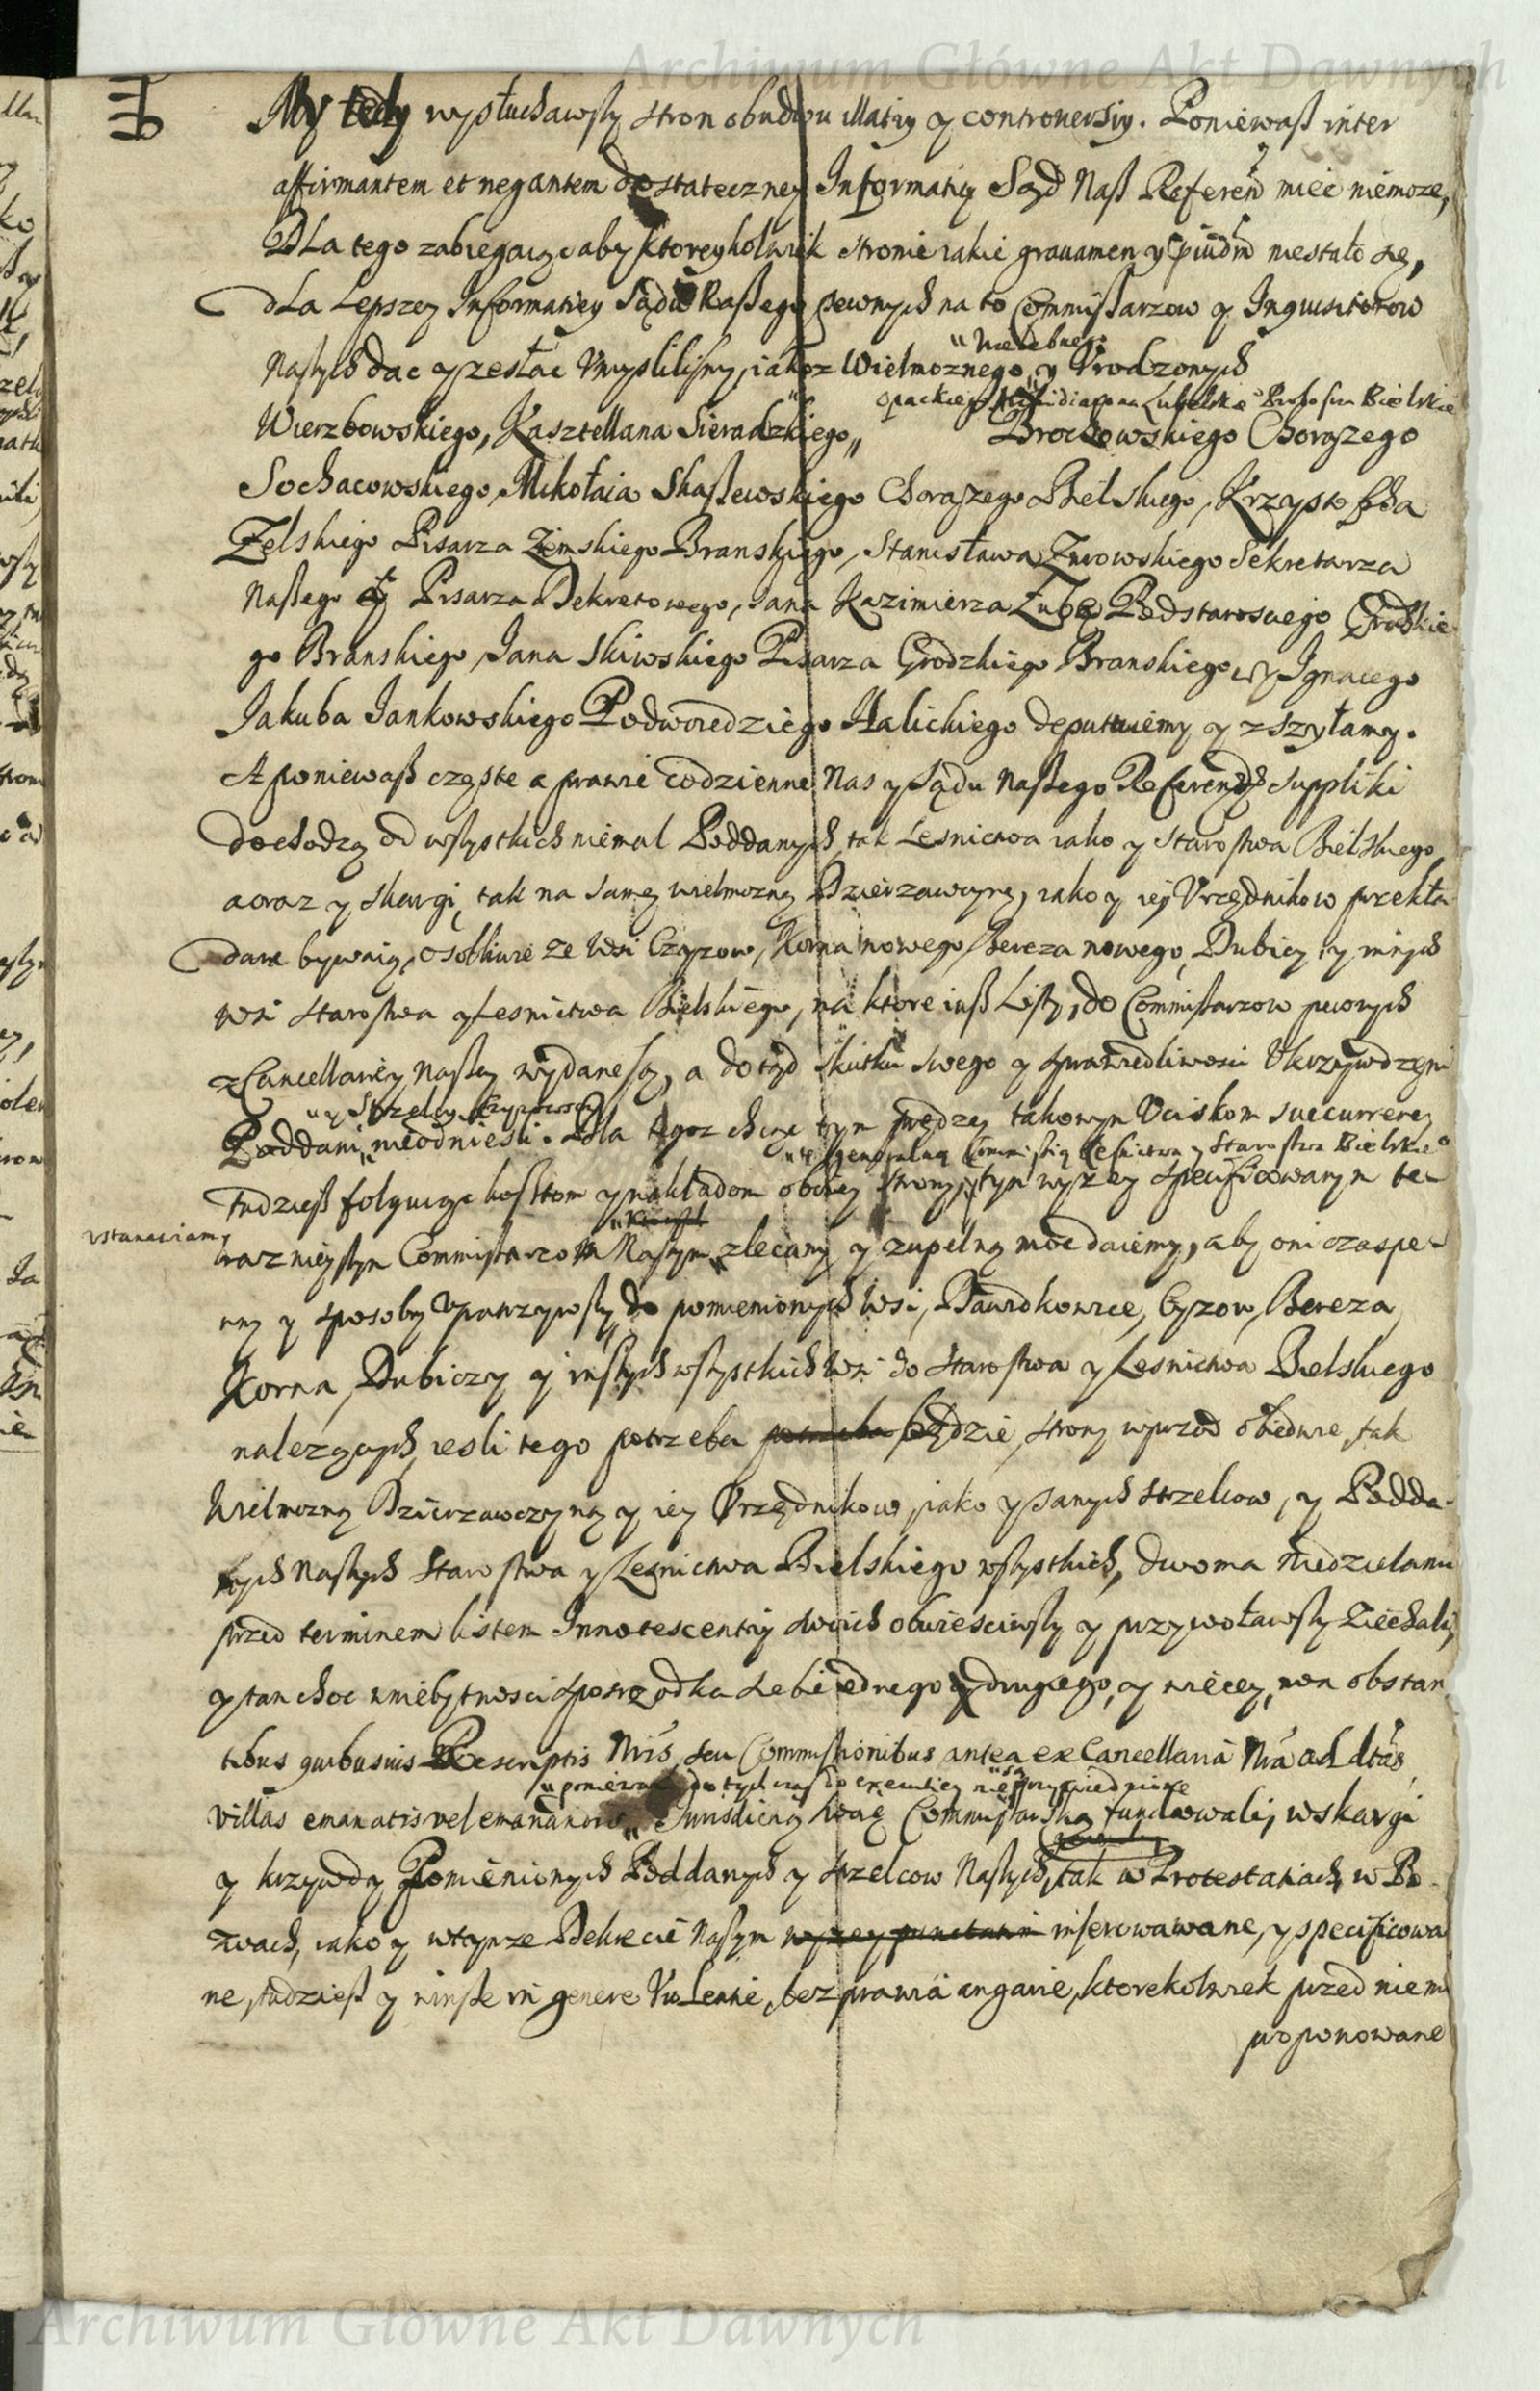 Archiwum Główne Akt Dawnych
My tedy wysłuchawszy stron obudwu illatiy y controversiy. Ponieważ inter
affirmantem et negantem dostateczney Informatiy Sąd Nasz Referen mieć niemoże,
Dla tego zabiegaiąc aby ktoreykolwiek stronie iakie gravamen y niestało się,
dla Lepszey Informatiey Sądu Naszego pewnych na to Commissarzow y Inquisitorow
"Wielebnego
Naszych dac y zesłac Umyslilismy, iakoz Wielmoznego y Urodzonych
Opackiego Lubelskie Bielskie
Wierzbowskiego, Kasztellana Sieradzkiego,, Brochowskiego Chorązego
Sochacowskiego, Mikołaia Skaszewskiego Chorązego Bielskiego, Krzysztoffa
Zelskiego Pisarza Zimskiego Branskiego, Stanisława Zurowskiego Sekretarza
Naszego y Pisarza Dekretowego, Iana Kazimierza Zubę Podstarosciego Grodzkie
go Branskiego, Iana Skiwskiego Pisarza Grodzkiego Branskiego y Ignacego
Jakuba Iankowskiego Podwoiedziego Halickiego deputuiemy y zszyłamy.
A poniewasz częste a prawie codzienne Nas y Sądu Naszego Referendz suppliki
dochodzą od wszystkich niemal Poddanych tak Lesnictwa iako y Starostwa Bielskiego
a oraz y skargi, tak na samę wielmozną Dzierzawczynę, iako y iey Urzędnikow przekła
dane bywaią, osobliwie ze wsi Czyzow, Korna nowego, Bereza nowego, Dubicz y innych
wsi Starostwa y Lesnictwa Bielskiego, na ktore iusz Listy, do Commissarzow pewnych
z Cancellariey Naszey wydane są, a dotąd skutku swego y sprawiedliwosci Ukrzywdzeni
"y Strzelcy
Poddani,, nieodniesli. Dla tegoz chcąc tym prędzey takowym Uciskom succurrere,
generalną Commissią Lesnictwa y Starostwa Bielskieo
tudziesz folguiąc kosztom y nakładom oboiey strony, tym wyzey specificowanym te-
ustanawiamy
raznieyszym Commissarzom Naszym zlecamy y zupełną moc daiemy, aby oni czas pe-
wny y sposobny upatrzywszy, do pomienionych wsi, Pawdkowice, Cyzow, Bereza,
Korna, Dubiczy y inszych wszystkich wsi do Starostwa y Lesnictwa Bielskiego
nalezących, iesli tego potrzeba potrzeba będzie, strony wprzod obiedwie, tak
Wielmozną Dzierzawczynę y iey Urzędnikow, iako y samych strzelcow, y Podda-
nych Naszych Starostwa y Lesnictwa Bielskiego wszystkich, dwoma Niedzielami
przed terminem listem Innotescentiy swoich obwiesciwszy y przywoławszy Ziechali,
y tam choc w niebytnosci sposrzodka siebie iednego y drugiego, y więcey, non obstan
tibus quibusvis Rescriptis Nris, seu Commissionibus antea ex Cancellaria Nra ad dtas
"poniewaz dotychczas do executiey nie przywiedzione
villas emanatis vel emanandis,, Iurisdicią swoię Commissarską fundowali, w skargi
y krzywdy Pomienionych Poddanych y strzelcow Naszych, tak w Protestatiach, w Po-
zwach, iako y w tymze Dekrecie Naszym wyzey punctatim inserowawane, y specificowa
ne, tudziesz y insze in genere violentie, bezprawia angarie, ktorekolwiek przed niemi
proponowane
Archiwum Główne Akt Dawnych